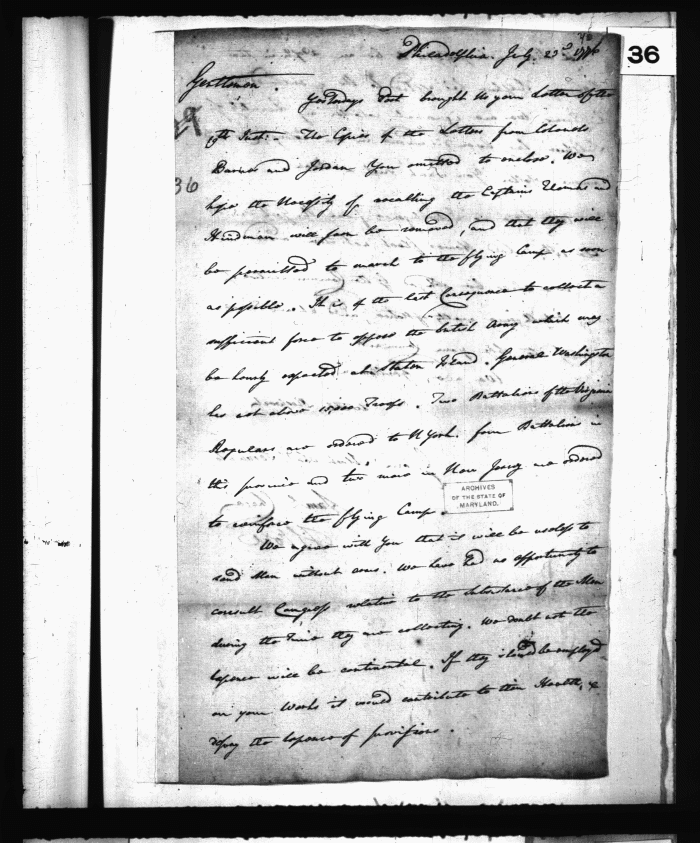 36
Philadelphia July 23d 1776
Gentlemen.
Yesterdays Post brought Us your Letter of the
Inst: The Copies of the Letters from Colonels
Barnes and Jordan You omitted to enclose. We
hope the Necessity of recalling the Captains Thomas and
Hindman will soon be removed, and that they will
be permitted to march to the flying Camp as soon
as possible. It is of the last Consequence to collect a
sufficient force to oppose the British Army which may
be hourly expected at Staten Island. General Washington
has not above 15,000 Troops. Two Battalions of the Virginia
Regulars are ordered to N York. four Battalions in
this province and two more in New Jersey are ordered
to reinforce the flying Camp.
ARCHIVES
OF THE STATE OF
MARYLAND.
We agree with You that it will be useless to
send Men without arms. We have had no opportunity to
consult Congress relative to the Subsistence of the Men
during the Time they are collecting. We doubt not the
expence will be continental. If they should be employed
on your Works it would contribute to their Health, &
defray the Expence of provisions.
36